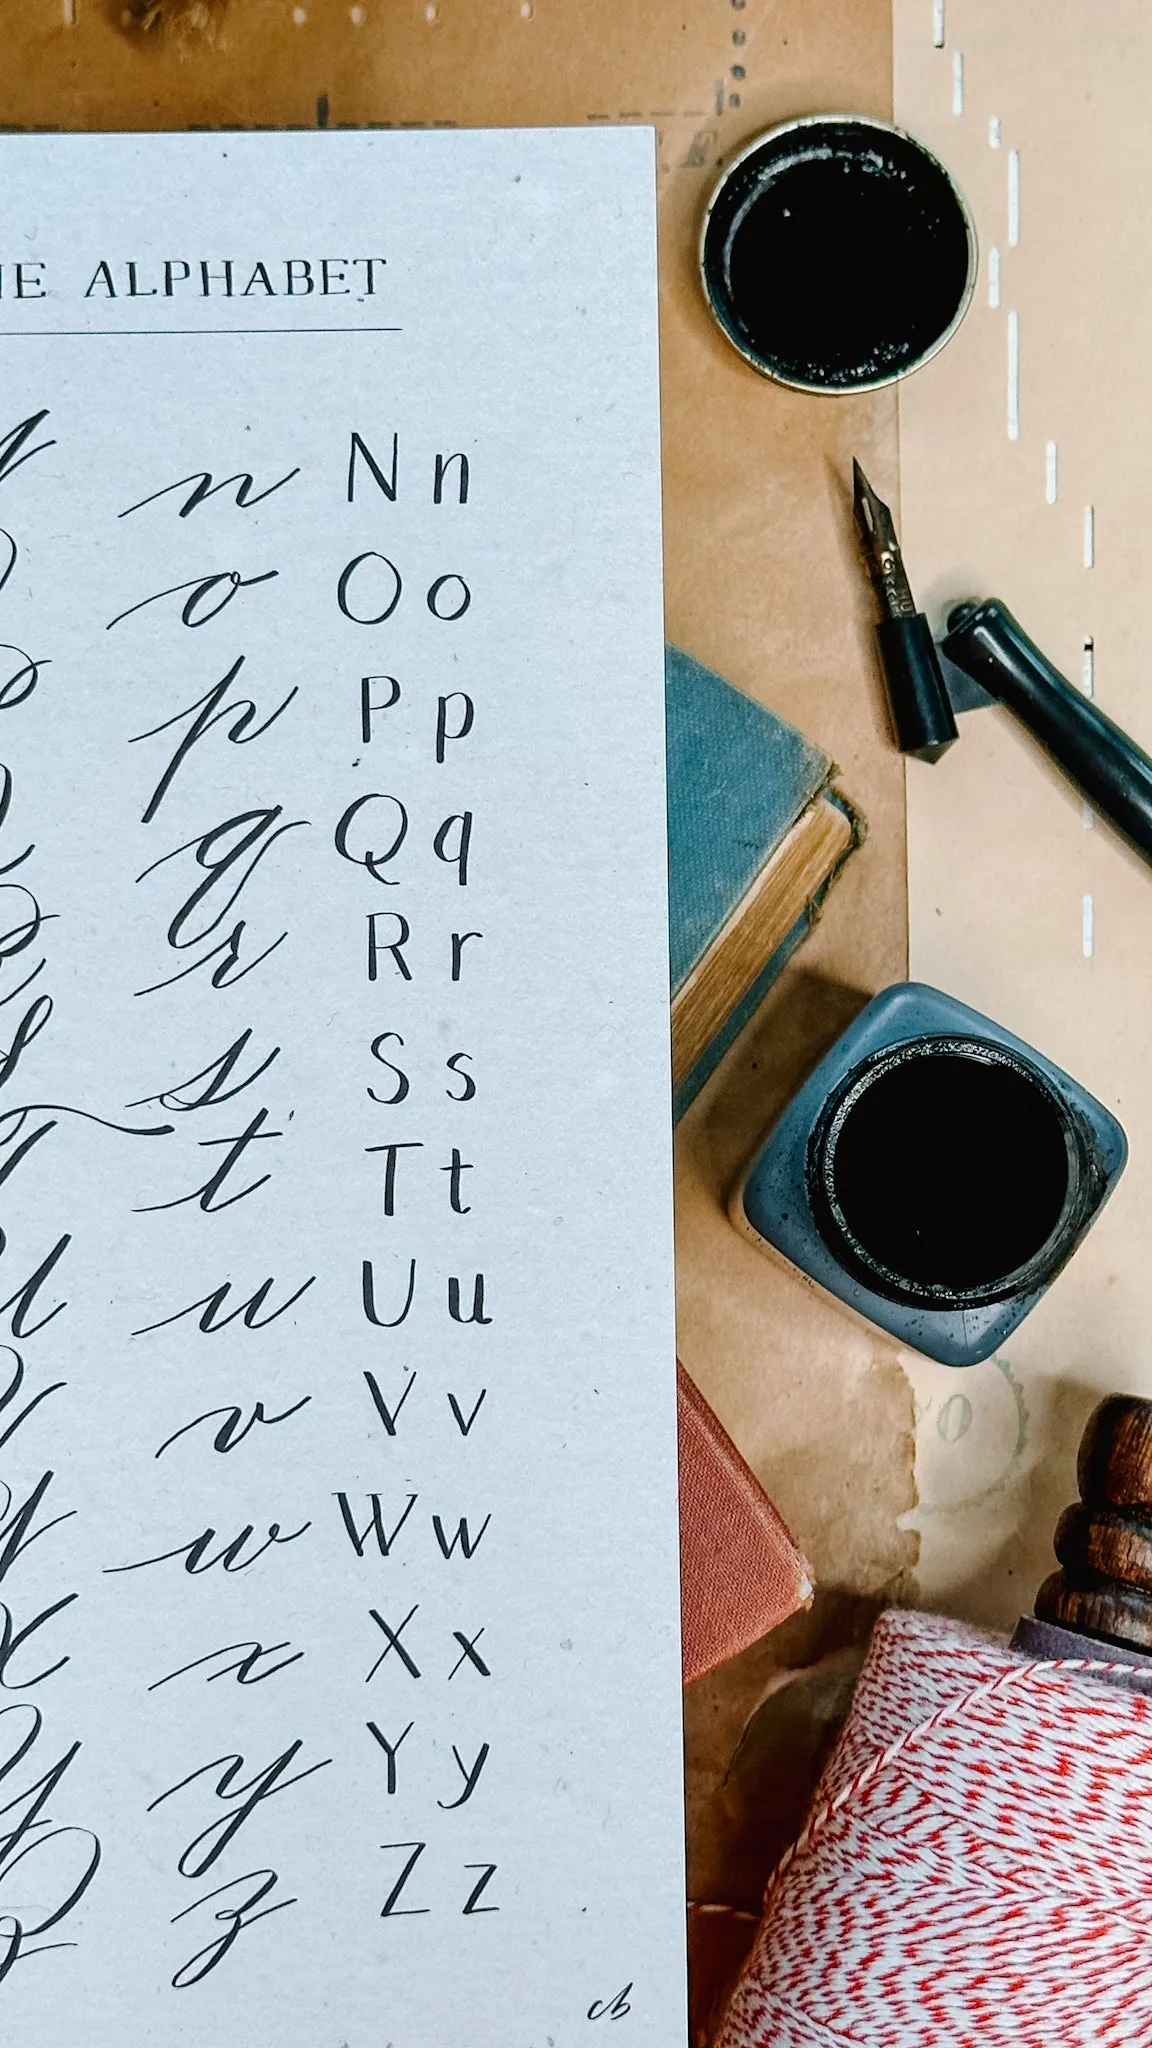 HE ALPHABET
n N n
o O o
p P p
q Q q
r R r
s S s
t T t
u U u
v V v
w W w
x X x
Y y Y y
z Z z
cb